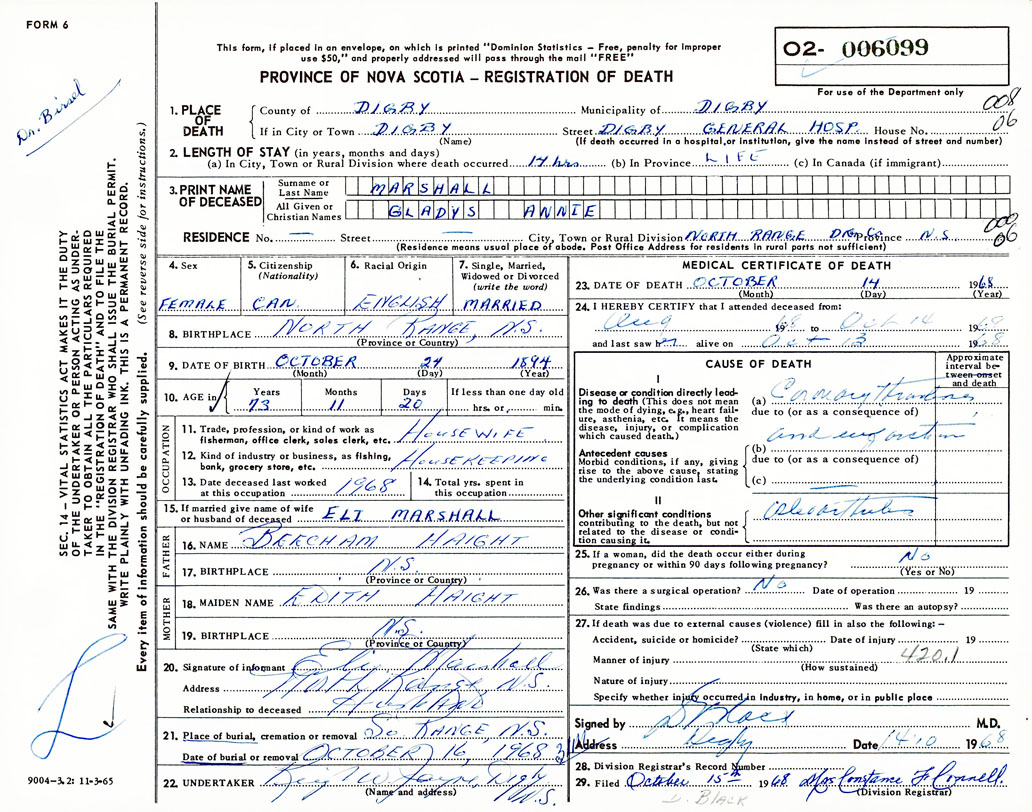 FORM 6
This form, if placed in an envelope, on which is printed "Dominion Statistics – Free, penalty for improper
use $50," and properly addressed will pass through the mail "FREE"
PROVINCE OF NOVA SCOTIA – REGISTRATION OF DEATH
O2- 006099
For use of the Department only
008
06
Dr. Bissel
SEC. 14 – VITAL STATISTICS ACT MAKES IT THE DUTY
OF THE UNDERTAKER OR PERSON ACTING AS UNDER-
TAKER TO OBTAIN ALL THE PARTICULARS REQUIRED
IN THE "REGISTRATION OF DEATH" AND TO FILE THE
SAME WITH THE DIVISION REGISTRAR WHO SHALL ISSUE THE BURIAL PERMIT.
WRITE PLAINLY WITH UNFADING INK. THIS IS A PERMANENT RECORD.
Every item of information should be carefully supplied. (See reverse side for instructions.)
1. PLACE OF DEATH County of DIGBY Municipality of DIGBY
If in City or Town DIGBY Street DIGBY GENERAL HOSP. House No.
(Name) (If death occurred in a hospital, or institution, give the name instead of street and number)
2. LENGTH OF STAY (in years, months and days)
(a) In City, Town or Rural Division where death occurred 14 hrs (b) In Province LIFE (c) In Canada (if immigrant)
3. PRINT NAME OF DECEASED Surname or Last Name MARSHALL
All Given or Christian Names GLADYS ANNIE
RESIDENCE No. — Street — City, Town or Rural Division NORTH RANGE DIG. Co. Province N.S.
06
(Residence means usual place of abode. Post Office Address for residents in rural parts not sufficient)
4. Sex 5. Citizenship (Nationality) 6. Racial Origin 7. Single, Married, Widowed or Divorced (write the word)
FEMALE CAN. ENGLISH MARRIED
8. BIRTHPLACE NORTH RANGE, N.S.
(Province or Country)
9. DATE OF BIRTH OCTOBER 24 1894
(Month) (Day) (Year)
10. AGE in Years Months Days If less than one day old
73 11 20 hrs. or min.
OCCUPATION
11. Trade, profession, or kind of work as
fisherman, office clerk, sales clerk, etc. HOUSEWIFE
12. Kind of industry or business, as fishing,
bank, grocery store, etc. HOUSEKEEPING
13. Date deceased last worked at this occupation 1968 14. Total yrs. spent in this occupation
15. If married give name of wife
or husband of deceased ELI MARSHALL
FATHER
16. NAME BEECHAM HAIGHT
17. BIRTHPLACE N.S.
(Province or Country)
MOTHER
18. MAIDEN NAME EDITH HAIGHT
19. BIRTHPLACE N.S.
(Province or Country)
20. Signature of informant Eli Marshall
Address North Range, N.S.
Relationship to deceased Husband
21. Place of burial, cremation or removal So. RANGE, N.S.
Date of burial or removal OCTOBER 16, 1968
22. UNDERTAKER Digby N.S.
(Name and address)
9004-3.2: 11-3-65
MEDICAL CERTIFICATE OF DEATH
23. DATE OF DEATH OCTOBER 14 1968
(Month) (Day) (Year)
24. I HEREBY CERTIFY that I attended deceased from:
Aug 1968 to Oct 14 1968
and last saw her alive on Oct 13 1968
CAUSE OF DEATH
Approximate interval between onset and death
I
Disease or condition directly leading to death (This does not mean the mode of dying, e.g., heart failure, asthenia, etc. It means the disease, injury, or complication which caused death.)
(a) Coronary thrombosis
due to (or as a consequence of)
Antecedent causes
Morbid conditions, if any, giving rise to the above cause, stating the underlying condition last.
(b) and
due to (or as a consequence of)
(c)
II
Other significant conditions contributing to the death, but not related to the disease or condition causing it. Osteoarthritis
25. If a woman, did the death occur either during
pregnancy or within 90 days following pregnancy? No
(Yes or No)
26. Was there a surgical operation? No Date of operation 19
State findings Was there an autopsy?
27. If death was due to external causes (violence) fill in also the following: –
Accident, suicide or homicide? Date of injury 19
(State which)
Manner of injury 420.1
(How sustained)
Nature of injury
Specify whether injury occurred in Industry, in home, or in public place
Signed by D Black M.D.
Address Digby Date 14 10 1968
28. Division Registrar's Record Number
29. Filed October 15th 1968 Mrs Constance F Connell.
(Division Registrar)
D. BLACK